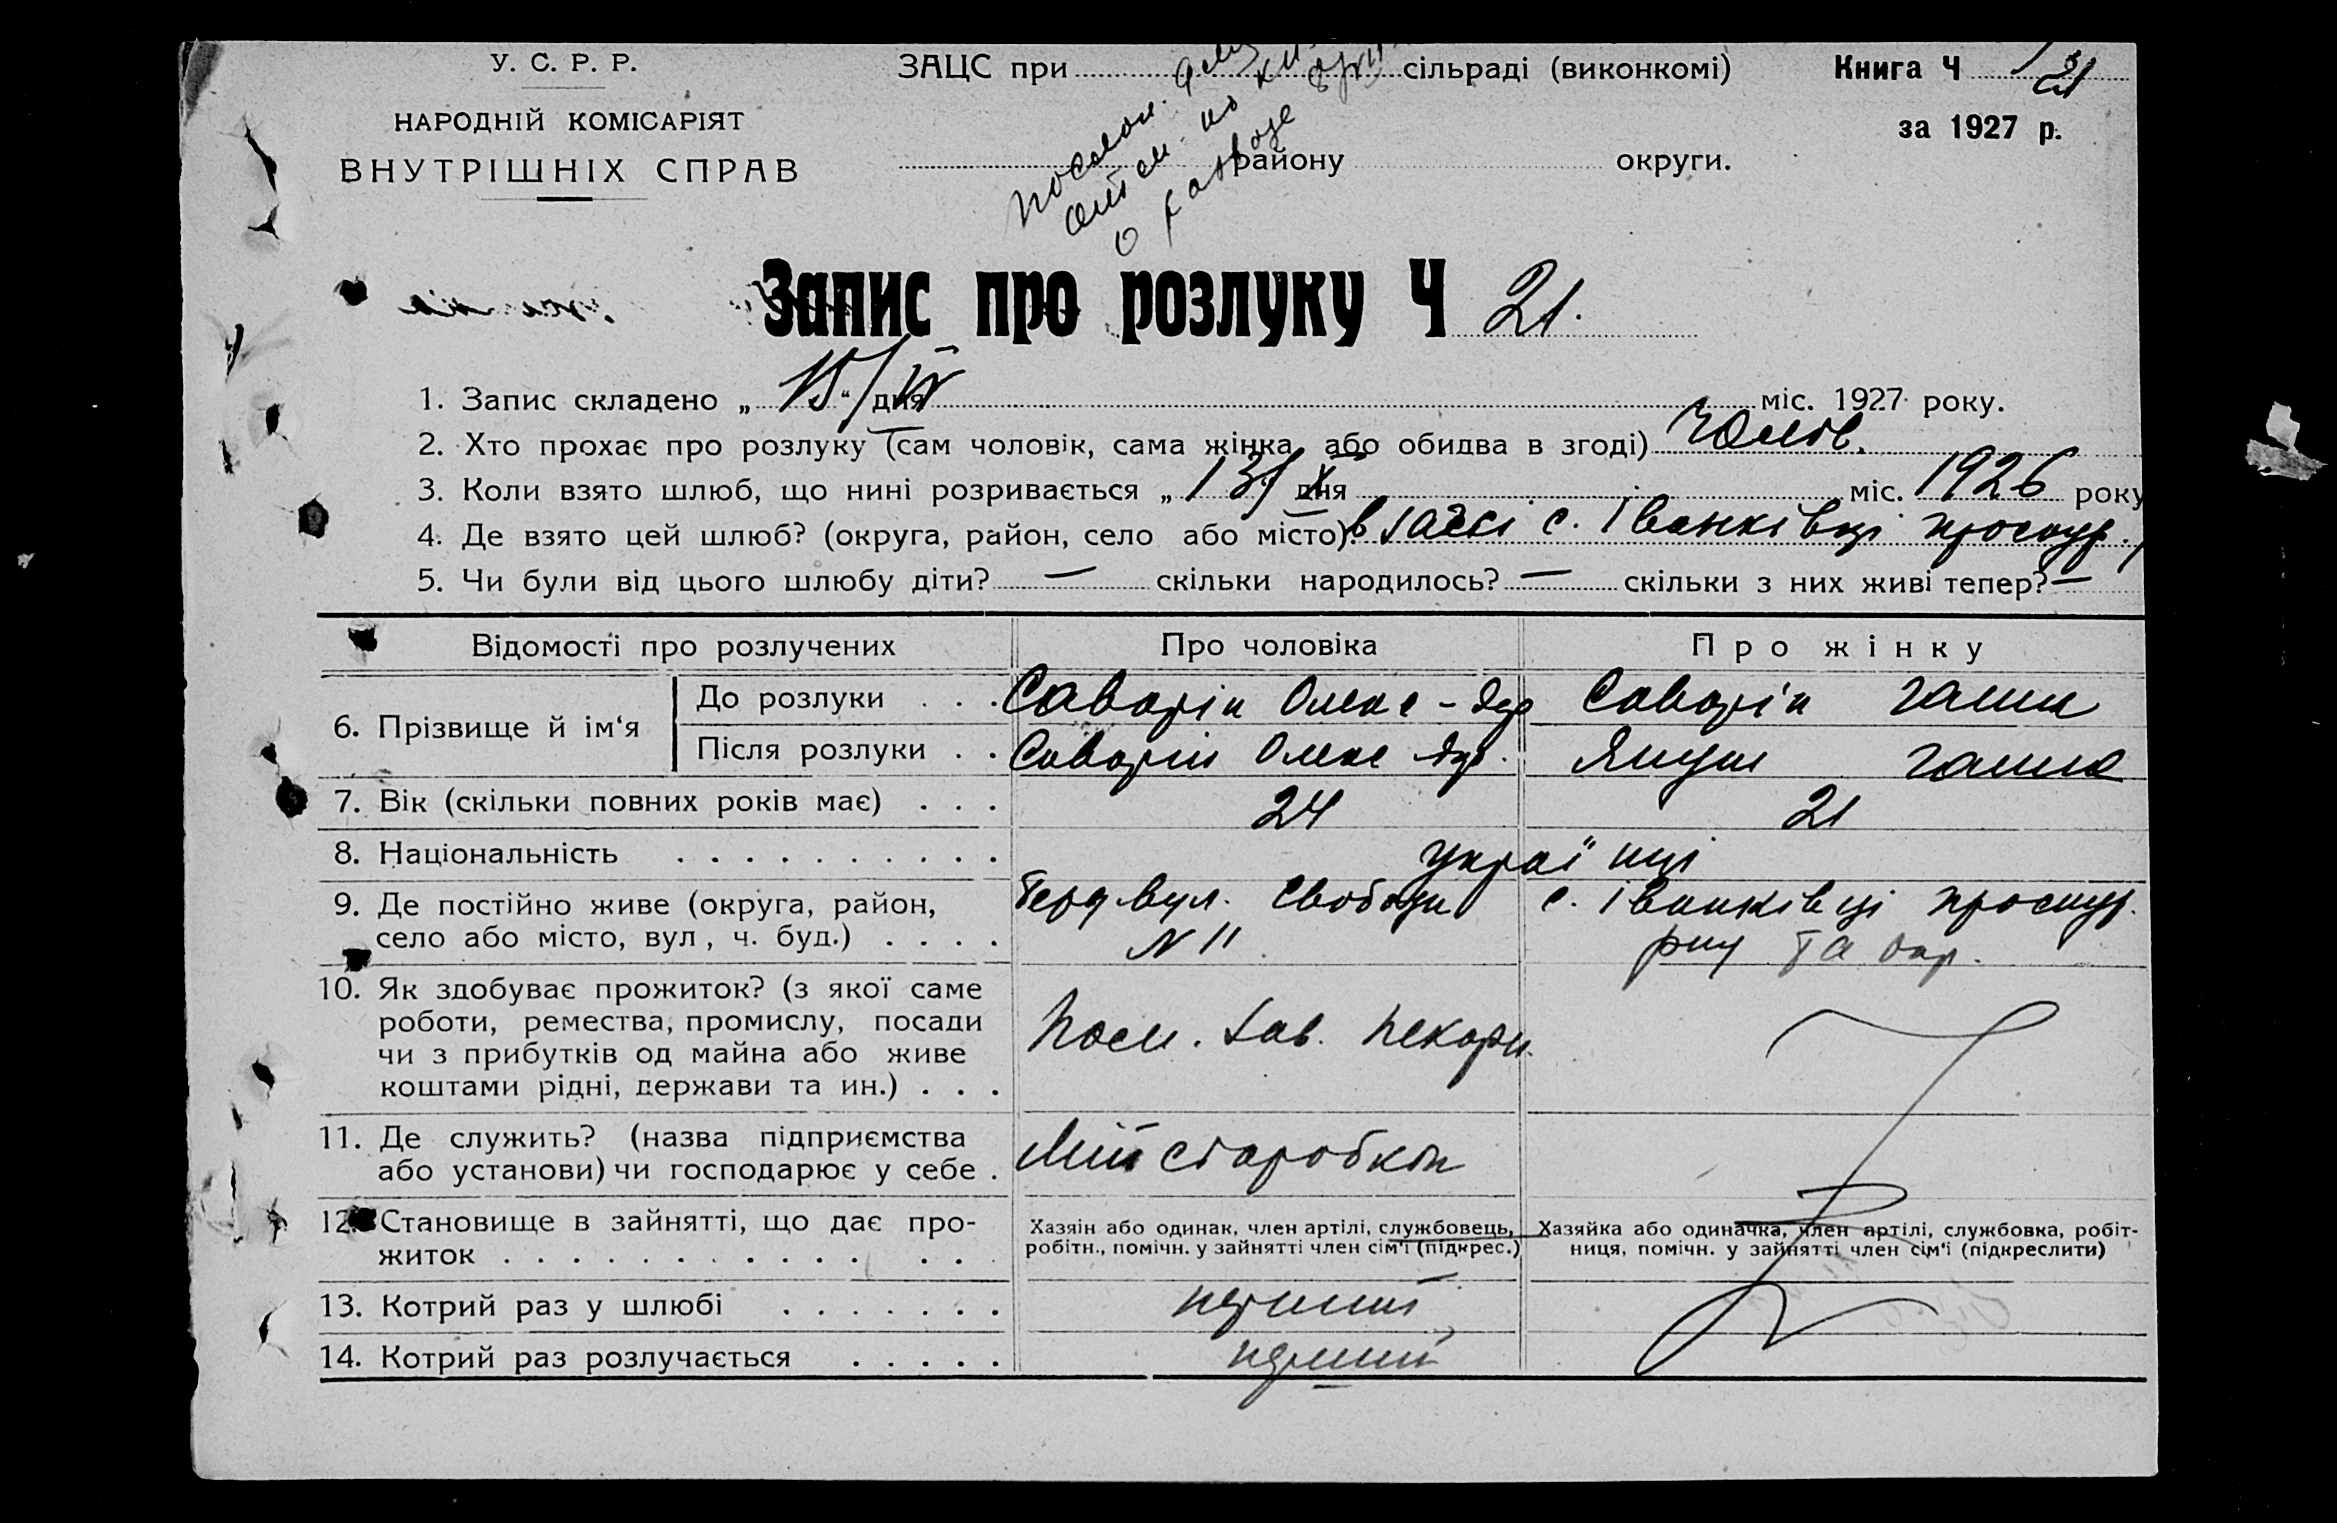 У. С. Р. Р.
НАРОДНІЙ КОМІСАРІЯТ
ВНУТРІШНІХ СПРАВ
ЗАЦС при сільраді (виконкомі)
району округи.
Книга Ч
21
за 1927 р.
о разводе
Запис про розлуку Ч 21.
1. Запис складено „ 15/IV “ дня міс. 1927 року.
2. Хто прохає про розлуку (сам чоловік, сама жінка або обидва в згоді) Чолов.
3. Коли взято шлюб, що нині розривається „ 13/X дня міс. 1926 року
4. Де взято цей шлюб? (округа, район, село або місто). в загсі с. Іванківці проскур.
5. Чи були від цього шлюбу діти? — скільки народилось? — скільки з них живі тепер? —
Відомості про розлучених Про чоловіка Про жінку
6. Прізвище й ім‘я
До розлуки . . . Саварін Олекс-др Саварін Ганна
Після розлуки . . Саварін Олекс др. Ганна
7. Вік (скільки повних років має) . . . 24 21
8. Національність . . . . . . . . . . українці
9. Де постійно живе (округа, район,
село або місто, вул, ч. буд.) . . . .
вул. Свободи
N 11
с. Іванківці проскур.
та окр.
10. Як здобуває прожиток? (з якої саме
роботи, ремества, промислу, посади
чи з прибутків од майна або живе
коштами рідні, держави та ин.) . . .
Зав. пекарн.
11. Де служить? (назва підприємства
або установи) чи господарює у себе .
12. Становище в зайнятті, що дає про-
житок . . . . . . . . . . . . .
Хазяін або одинак, член артілі, службовець,
робітн., помічн. у зайнятті член сім‘ї (підкрес.)
Хазяйка або одиначка, член артілі, службовка, робіт-
ниця, помічн. у зайнятті член сім‘ї (підкреслити)
13. Котрий раз у шлюбі . . . . . . . перший
14. Котрий раз розлучається . . . . . перший